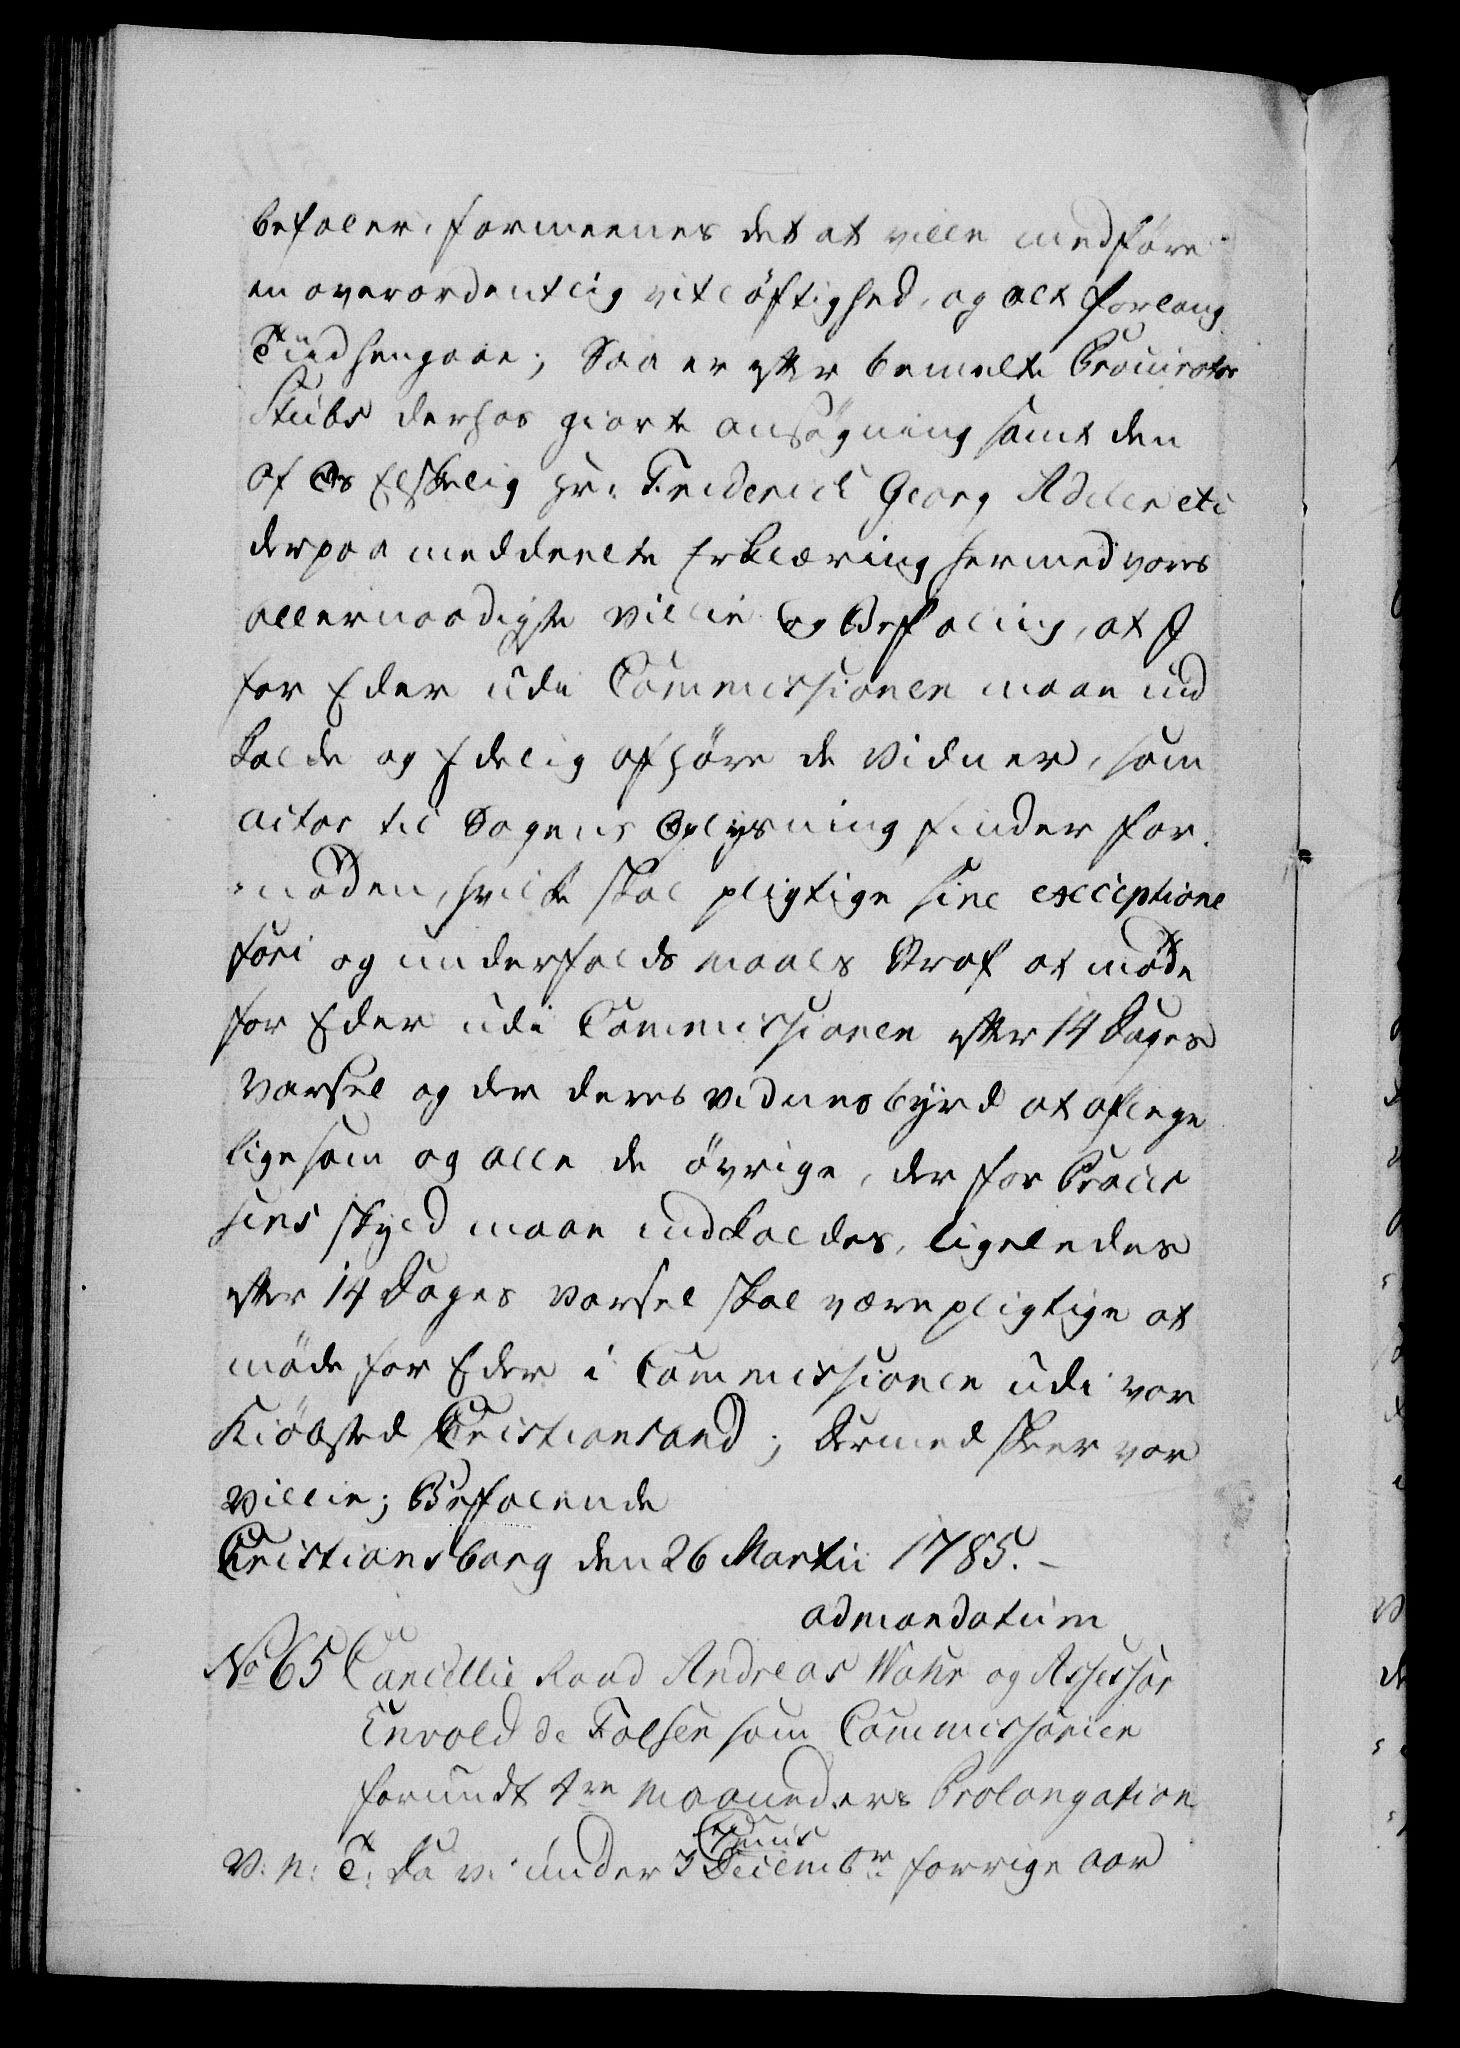 befaler, formeenes det at ville medføre
en overordentlig vitløftighed, og alt for lang
Tiid hengaae; Saa er efter bemelte Procurator
Stubs derhos giorte ansøgning samt den
af Os Elskelig Hr: Friderich Georg Adeler etc
derpaa meddeelte Erklæring hermed vores
allernaadigste Villie og Befaling, at I
for Eder udi Commissionen maae ind
kalde og Edelig afhøre de Vidner, som
actor til Sagens Oplysning finder for
nøden, hvilke skal pligtige sine exceptione
fori og under falds maals Straf at møde
for Eder udi Commissionen efter 14 Dages
Varsel og der deres vidnesbyrd at aflegge
ligesom og alle de øvrige, der for Proces
sens skyld maae indkaldes, ligeledes
efter 14 Dages Varsel skal være pligtige at
møde for Eder i Commissionen udi vor
Kiøbsted Cristiansand; Dermed skeer vor
Villie; Befalende
Cristiansborg den 26 Martii 1785.–
ad mandatum
No 65 Cancellie Raad Andreas Wahr og Assessor
Envold de Falsen som Commissarier
forundt 4re Maaneders Prolongation
V: n: T: Da vi under 3 Decembr forrige aar